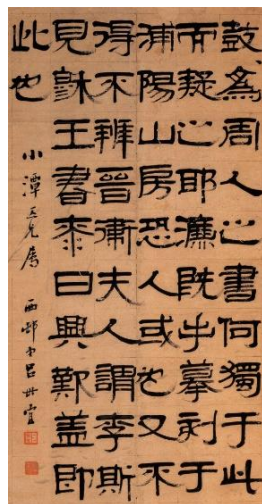 鼓為周人之書何獨于此
而疑之耶濂既手摹刻于
浦陽山房恐人或也又不
得不辨晉衛夫人謂李斯
見穆王書桼日興歎蓋即
此也
小潭五兄屬 西邨弟呂世宜